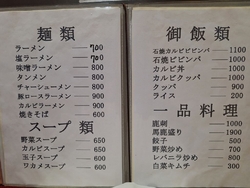 麺類
ラーメン 700
塩ラーメン 700
味噌ラーメン 800
タンメン 800
チャーシューメン 800
豚ロースラーメン 900
カルビラーメン 900
焼きそば 600
スープ類
野菜スープ 650
カルビスープ 650
玉子スープ 500
ワカメスープ 500
御飯類
石焼カルビビビンパ 1100
石焼ビビンパ 1000
カルビ丼 1000
カルビクッパ 1000
クッパ 900
ライス 200
一品料理
鹿刺 1000
馬鹿盛り 1900
餃子 500
野菜炒め 700
レバニラ炒め 800
白菜キムチ 300